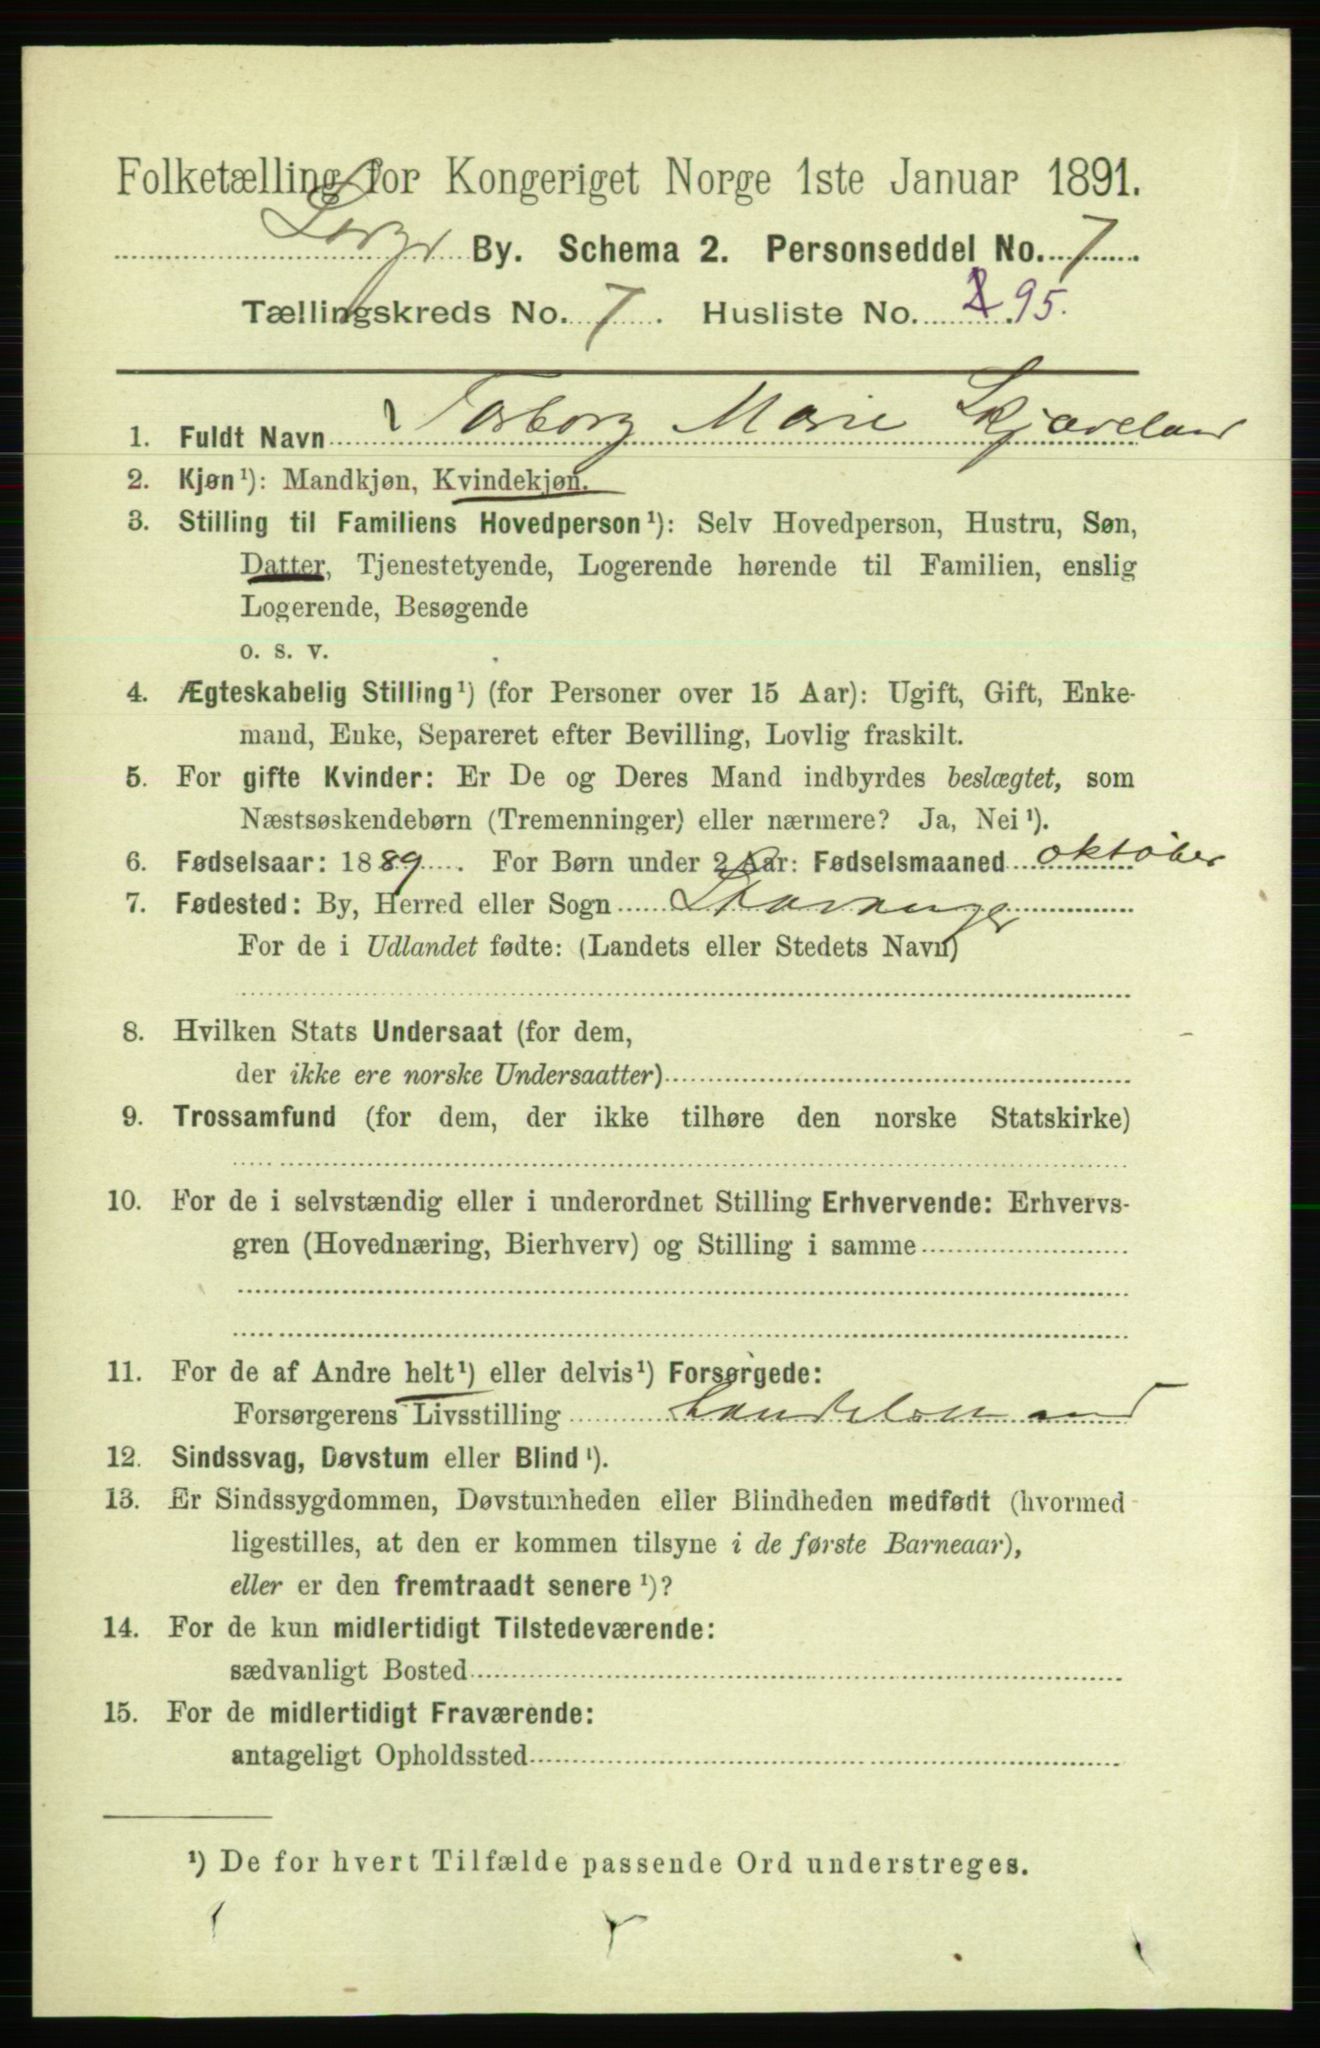 Folketælling for Kongeriget Norge 1ste Januar 1891.
By. Schema 2. Personseddel No. 7
Tællingskreds No. 7. Husliste No. 95.
1. Fuldt Navn Torborg Marie Skjæveland
2. Kjøn¹): Mandkjøn, Kvindekjøn.
3. Stilling til Familiens Hovedperson¹): Selv Hovedperson, Hustru, Søn,
Datter, Tjenestetyende, Logerende hørende til Familien, enslig
Logerende, Besøgende
o. s. v.
4. Ægteskabelig Stilling¹) (for Personer over 15 Aar): Ugift, Gift, Enke-
mand, Enke, Separeret efter Bevilling, Lovlig fraskilt.
5. For gifte Kvinder: Er De og Deres Mand indbyrdes beslægtet, som
Næstsøskendebørn (Tremenninger) eller nærmere? Ja, Nei¹).
6. Fødselsaar: 1889. For Børn under 2 Aar: Fødselsmaaned oktober
7. Fødested: By, Herred eller Sogn Stavanger
For de i Udlandet fødte: (Landets eller Stedets Navn)
8. Hvilken Stats Undersaat (for dem,
der ikke ere norske Undersaatter)
9. Trossamfund (for dem, der ikke tilhøre den norske Statskirke)
10. For de i selvstændig eller i underordnet Stilling Erhvervende: Erhvervs-
gren (Hovednæring, Bierhverv) og Stilling i samme
11. For de af Andre helt¹) eller delvis¹) Forsørgede:
Forsørgerens Livsstilling
12. Sindssvag, Døvstum eller Blind¹).
13. Er Sindssygdommen, Døvstumheden eller Blindheden medfødt (hvormed
ligestilles, at den er kommen tilsyne i de første Barneaar),
eller er den fremtraadt senere¹)?
14. For de kun midlertidigt Tilstedeværende:
sædvanligt Bosted
15. For de midlertidigt Fraværende:
antageligt Opholdssted
¹) De for hvert Tilfælde passende Ord understreges.